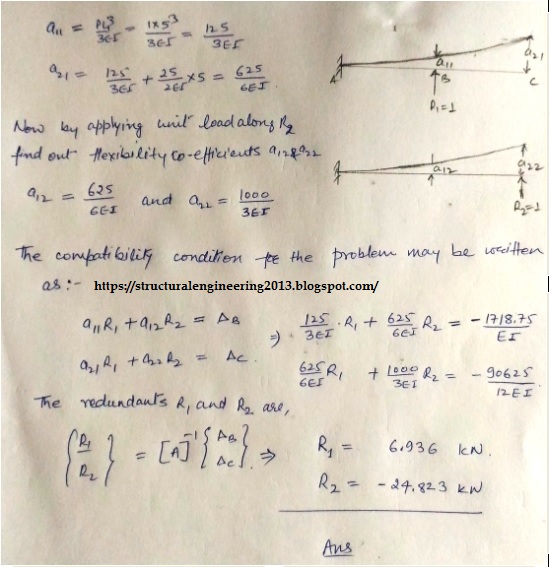 a11 = PL1³/3EI = 1×5³/3EI = 125/3EI
a21 = 125/3EI + 25/2EI ×5 = 625/6EI
A a11 B a21 C
R1=1
Now by applying unit load along R2
find out flexibility co-efficients a12 & a22
A a12 a22
R2=1
a12 = 625/6EI and a22 = 1000/3EI
The compatibility condition for the problem may be written
as:- https://structuralengineering2013.blogspot.com/
a11R1 + a12R2 = ΔB ⇒ 125/3EI · R1 + 625/6EI R2 = -1718.75/EI
a21R1 + a22R2 = ΔC. 625/6EI R1 + 1000/3EI R2 = -90625/12EI
The redundants R1 and R2 are,
{R1 R2} = [A]⁻¹ {ΔB ΔC} ⇒ R1 = 6.936 kN.
R2 = -24.823 kN
Ans